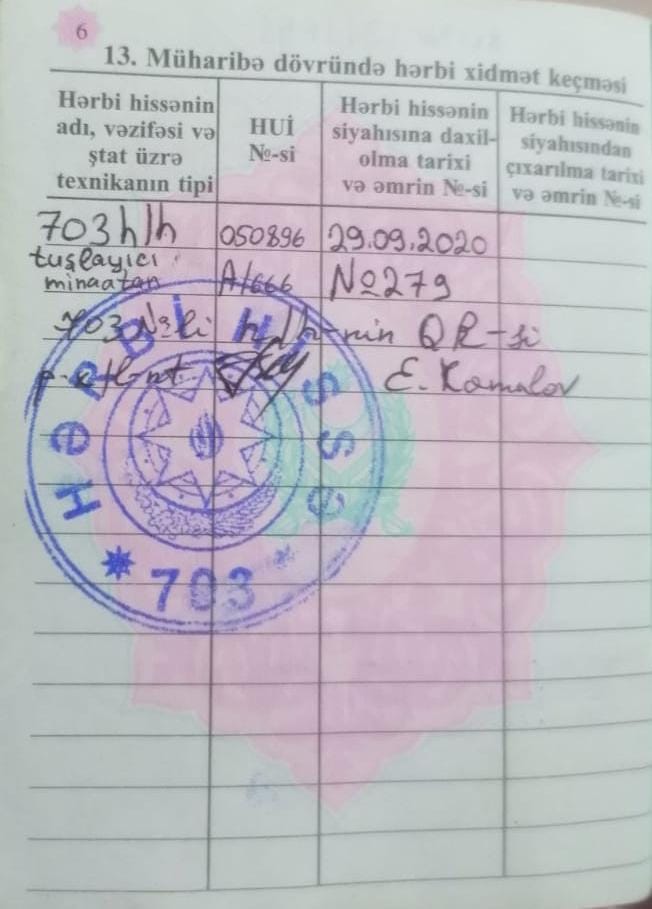 6
13. Müharibə dövründə hərbi xidmət keçməsi
Hərbi hissənin
adı, vəzifəsi və
ştat üzrə
texnikanın tipi
HUİ
№-si
Hərbi hissənin
siyahısına daxil-
olma tarixi
və əmrin №-si
Hərbi hissənin
siyahısından
çıxarılma tarixi
və əmrin №-si
703 h/h
050896
29.09.2020
tuşlayıcı
minaatan
A/666
№279
703 №li h/h-nin QR-si
E. Kamalov
HƏRBİ HİSSƏ
703